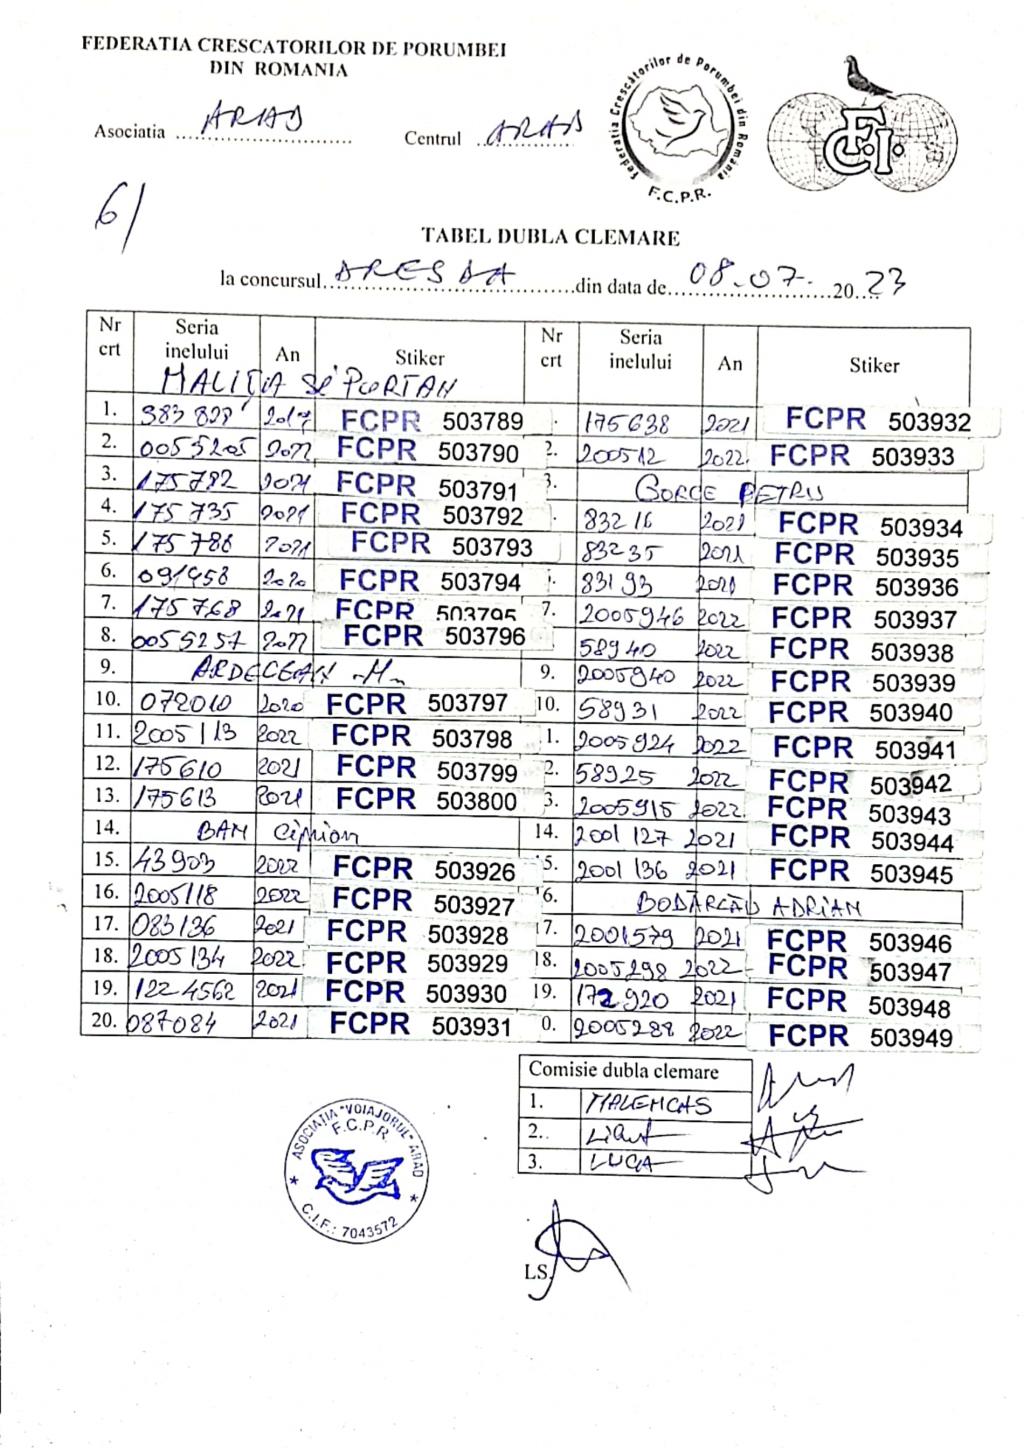 FEDERATIA CRESCATORILOR DE PORUMBEI
DIN ROMANIA
Asociatia ARAD Centrul ARAD
Federatia Crescătorilor de Porumbei din România
F.C.P.R.
F.C.I.
6/
TABEL DUBLA CLEMARE
la concursul ORESDA din data de 08.07. 2023
Nr crt Seria inelului An Stiker Nr crt Seria inelului An Stiker
MALIȚIA SI PURTAN
1. 383828 2017 FCPR 503789 175638 2021 FCPR 503932
2. 0055205 2022 FCPR 503790 2. 200512 2022 FCPR 503933
3. 175782 2021 FCPR 503791 3. GORGE PETRU
4. 175735 2021 FCPR 503792 83216 2021 FCPR 503934
5. 175786 2021 FCPR 503793 83235 2021 FCPR 503935
6. 091458 2020 FCPR 503794 83193 2021 FCPR 503936
7. 175768 2021 FCPR 503795 7. 2005946 2022 FCPR 503937
8. 0055257 2022 FCPR 503796 58940 2022 FCPR 503938
9. ARDECEAN M. 9. 2005940 2022 FCPR 503939
10. 072010 2020 FCPR 503797 10. 58931 2022 FCPR 503940
11. 2005113 2022 FCPR 503798 1. 2005924 2022 FCPR 503941
12. 175610 2021 FCPR 503799 2. 58925 2022 FCPR 503942
13. 175613 2021 FCPR 503800 3. 2005915 2022 FCPR 503943
14. BAN Ciprian 14. 2001127 2021 FCPR 503944
15. 43903 2022 FCPR 503926 5. 2001136 2021 FCPR 503945
16. 2005118 2022 FCPR 503927 6. BODĂRCĂU ADRIAN
17. 083136 2021 FCPR 503928 7. 2001579 2021 FCPR 503946
18. 2005134 2022 FCPR 503929 18. 2005298 2022 FCPR 503947
19. 1224562 2021 FCPR 503930 19. 172920 2021 FCPR 503948
20. 087084 2021 FCPR 503931 0. 2005288 2022 FCPR 503949
Comisie dubla clemare
1. MALENCAS
2..
3. LUCA
ASOCIATIA "VOIAJORUL" ARAD
F.C.P.R.
C.I.F.: 7043572
LS.